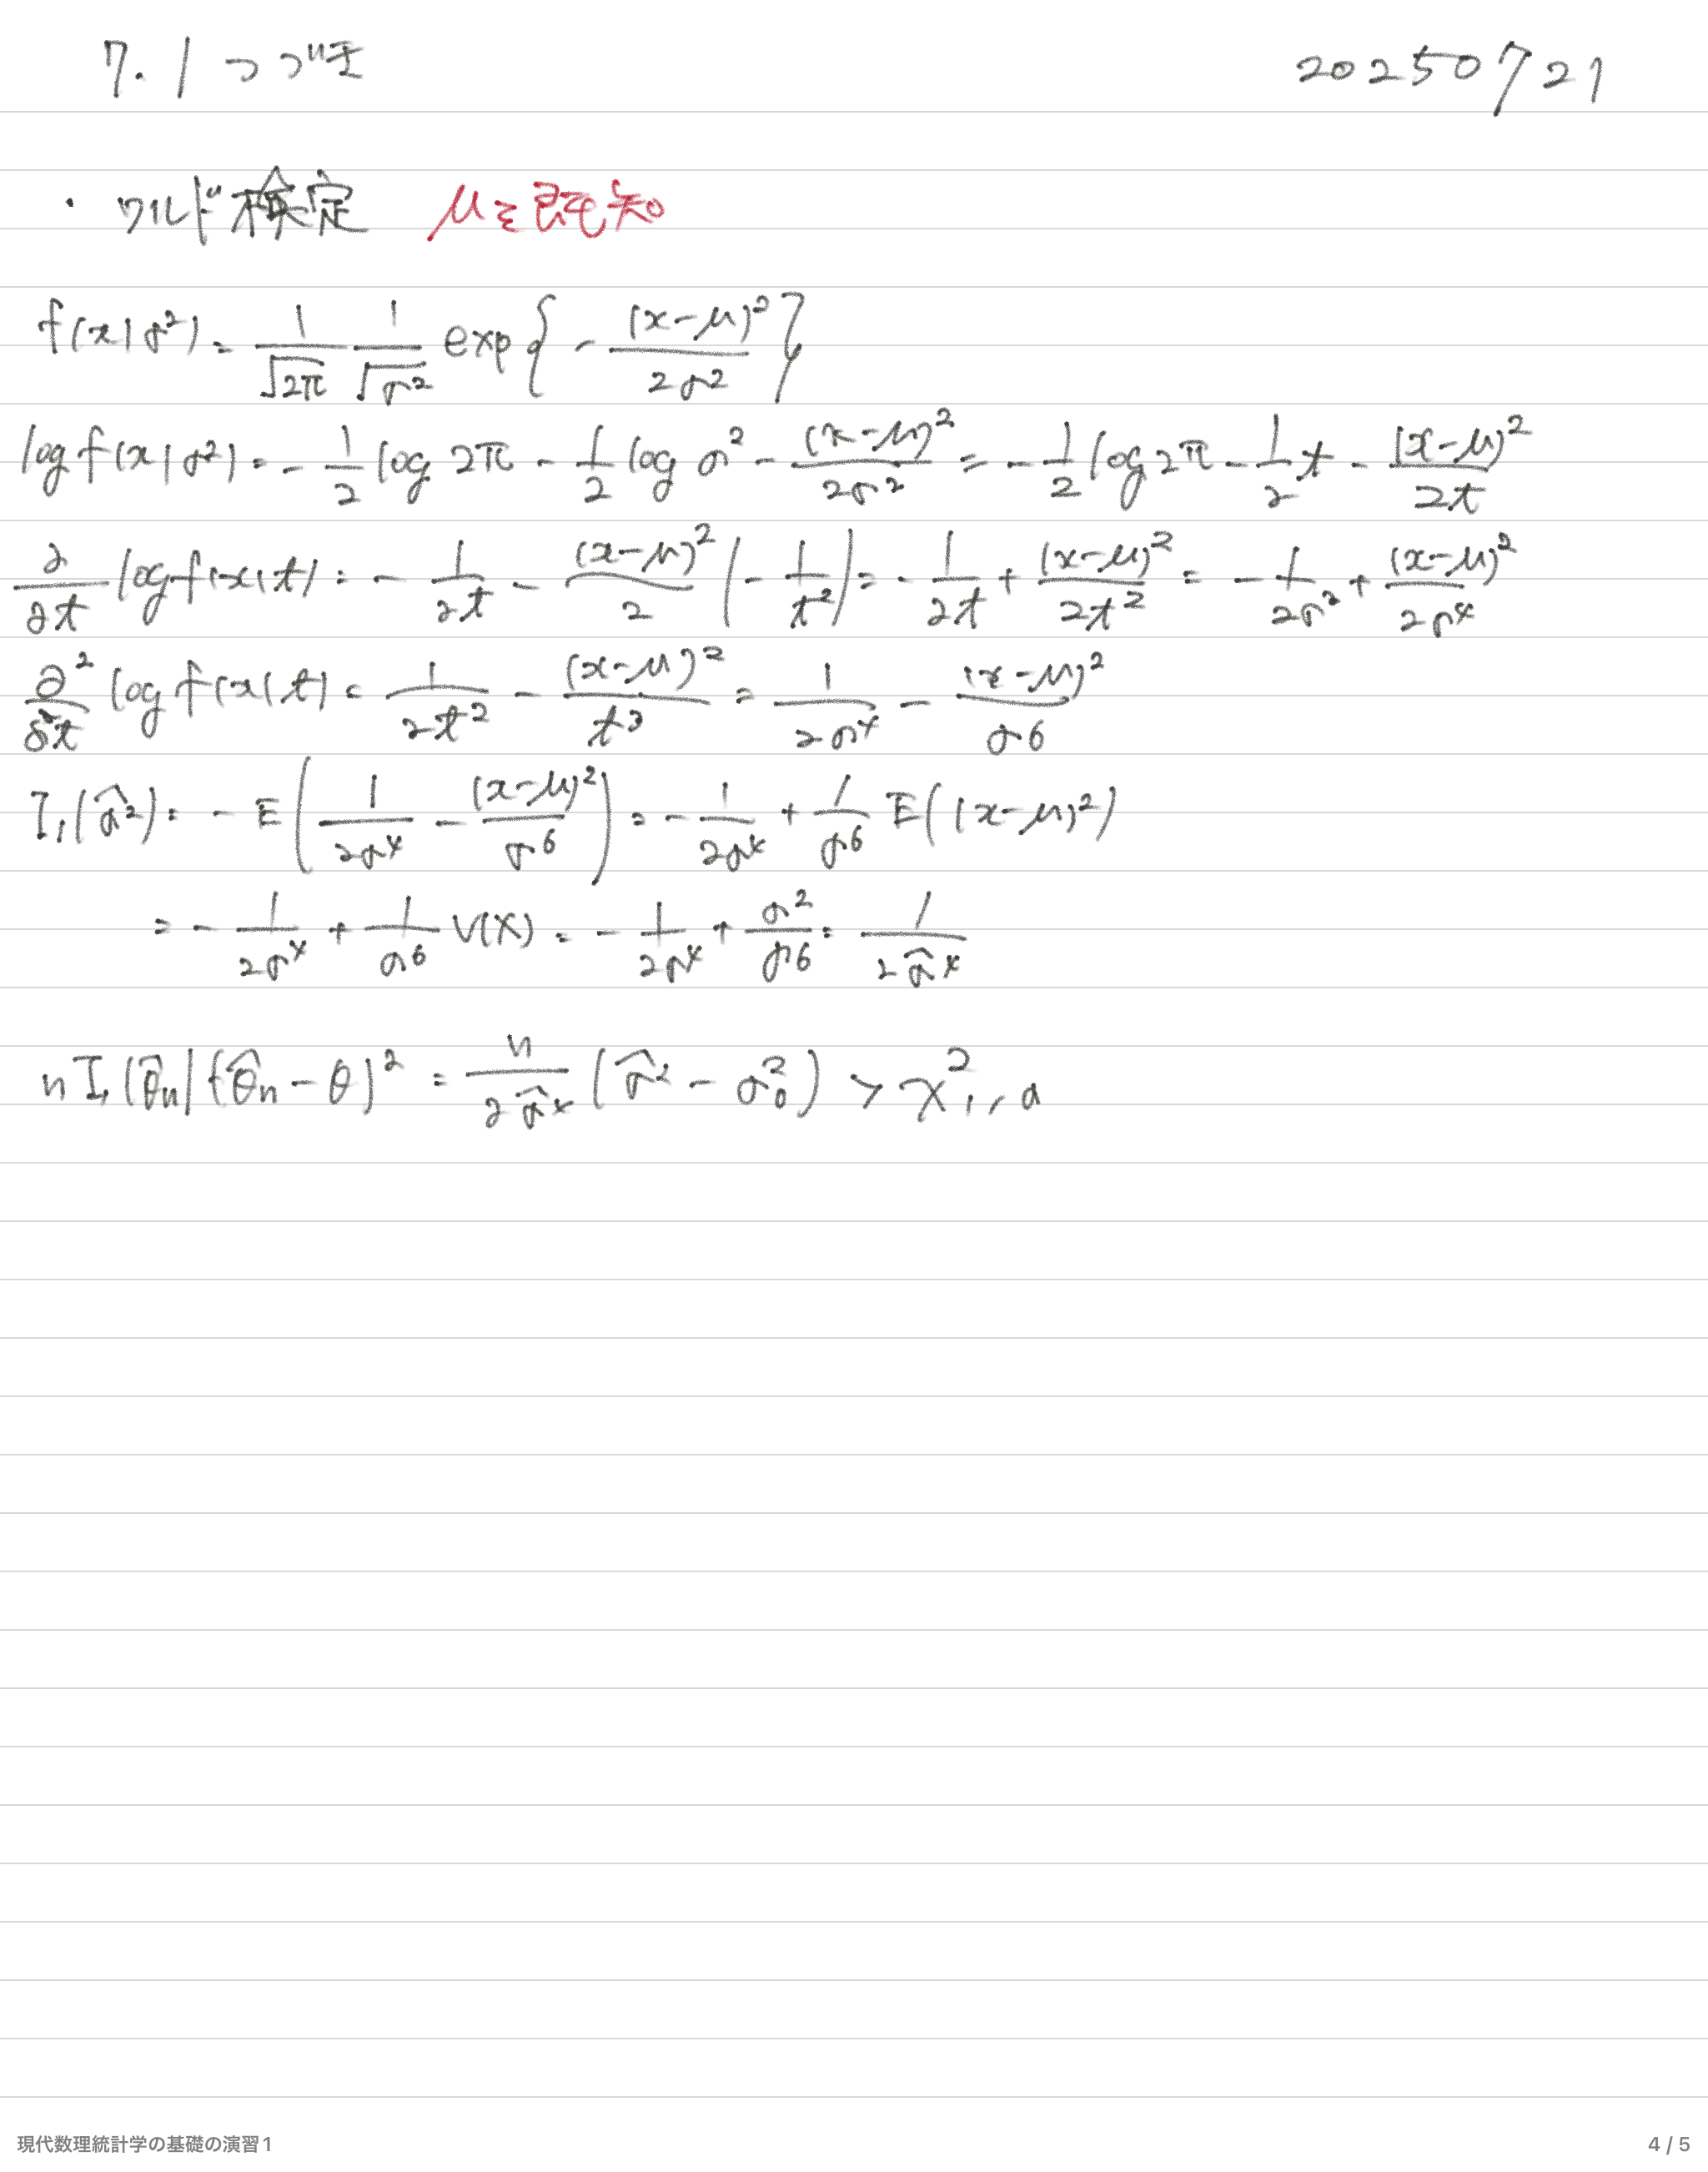 7.1 つづき
20250721
・ワルド検定 μを既知
f(x|σ²) = 1/√2π 1/√σ² exp{ - (x-μ)²/2σ² }
log f(x|σ²) = - 1/2 log 2π - 1/2 log σ² - (x-μ)²/2σ² = - 1/2 log 2π - 1/2 t - (x-μ)²/2t
∂/∂t log f(x|t) = - 1/2t - (x-μ)²/2 (- 1/t²) = - 1/2t + (x-μ)²/2t² = - 1/2σ² + (x-μ)²/2σ⁴
∂²/∂²t log f(x|t) = 1/2t² - (x-μ)²/t³ = 1/2σ⁴ - (x-μ)²/σ⁶
I₁(σ̂²) = - E( 1/2σ⁴ - (x-μ)²/σ⁶ ) = - 1/2σ⁴ + 1/σ⁶ E((x-μ)²)
= - 1/2σ⁴ + 1/σ⁶ V(X) = - 1/2σ⁴ + σ²/σ⁶ = 1/2σ̂⁴
n I₁(θ̂n) {θ̂n - θ}² = n/2σ̂⁴ (σ̂² - σ₀²) > χ²₁,α
現代数理統計学の基礎の演習1
4 / 5